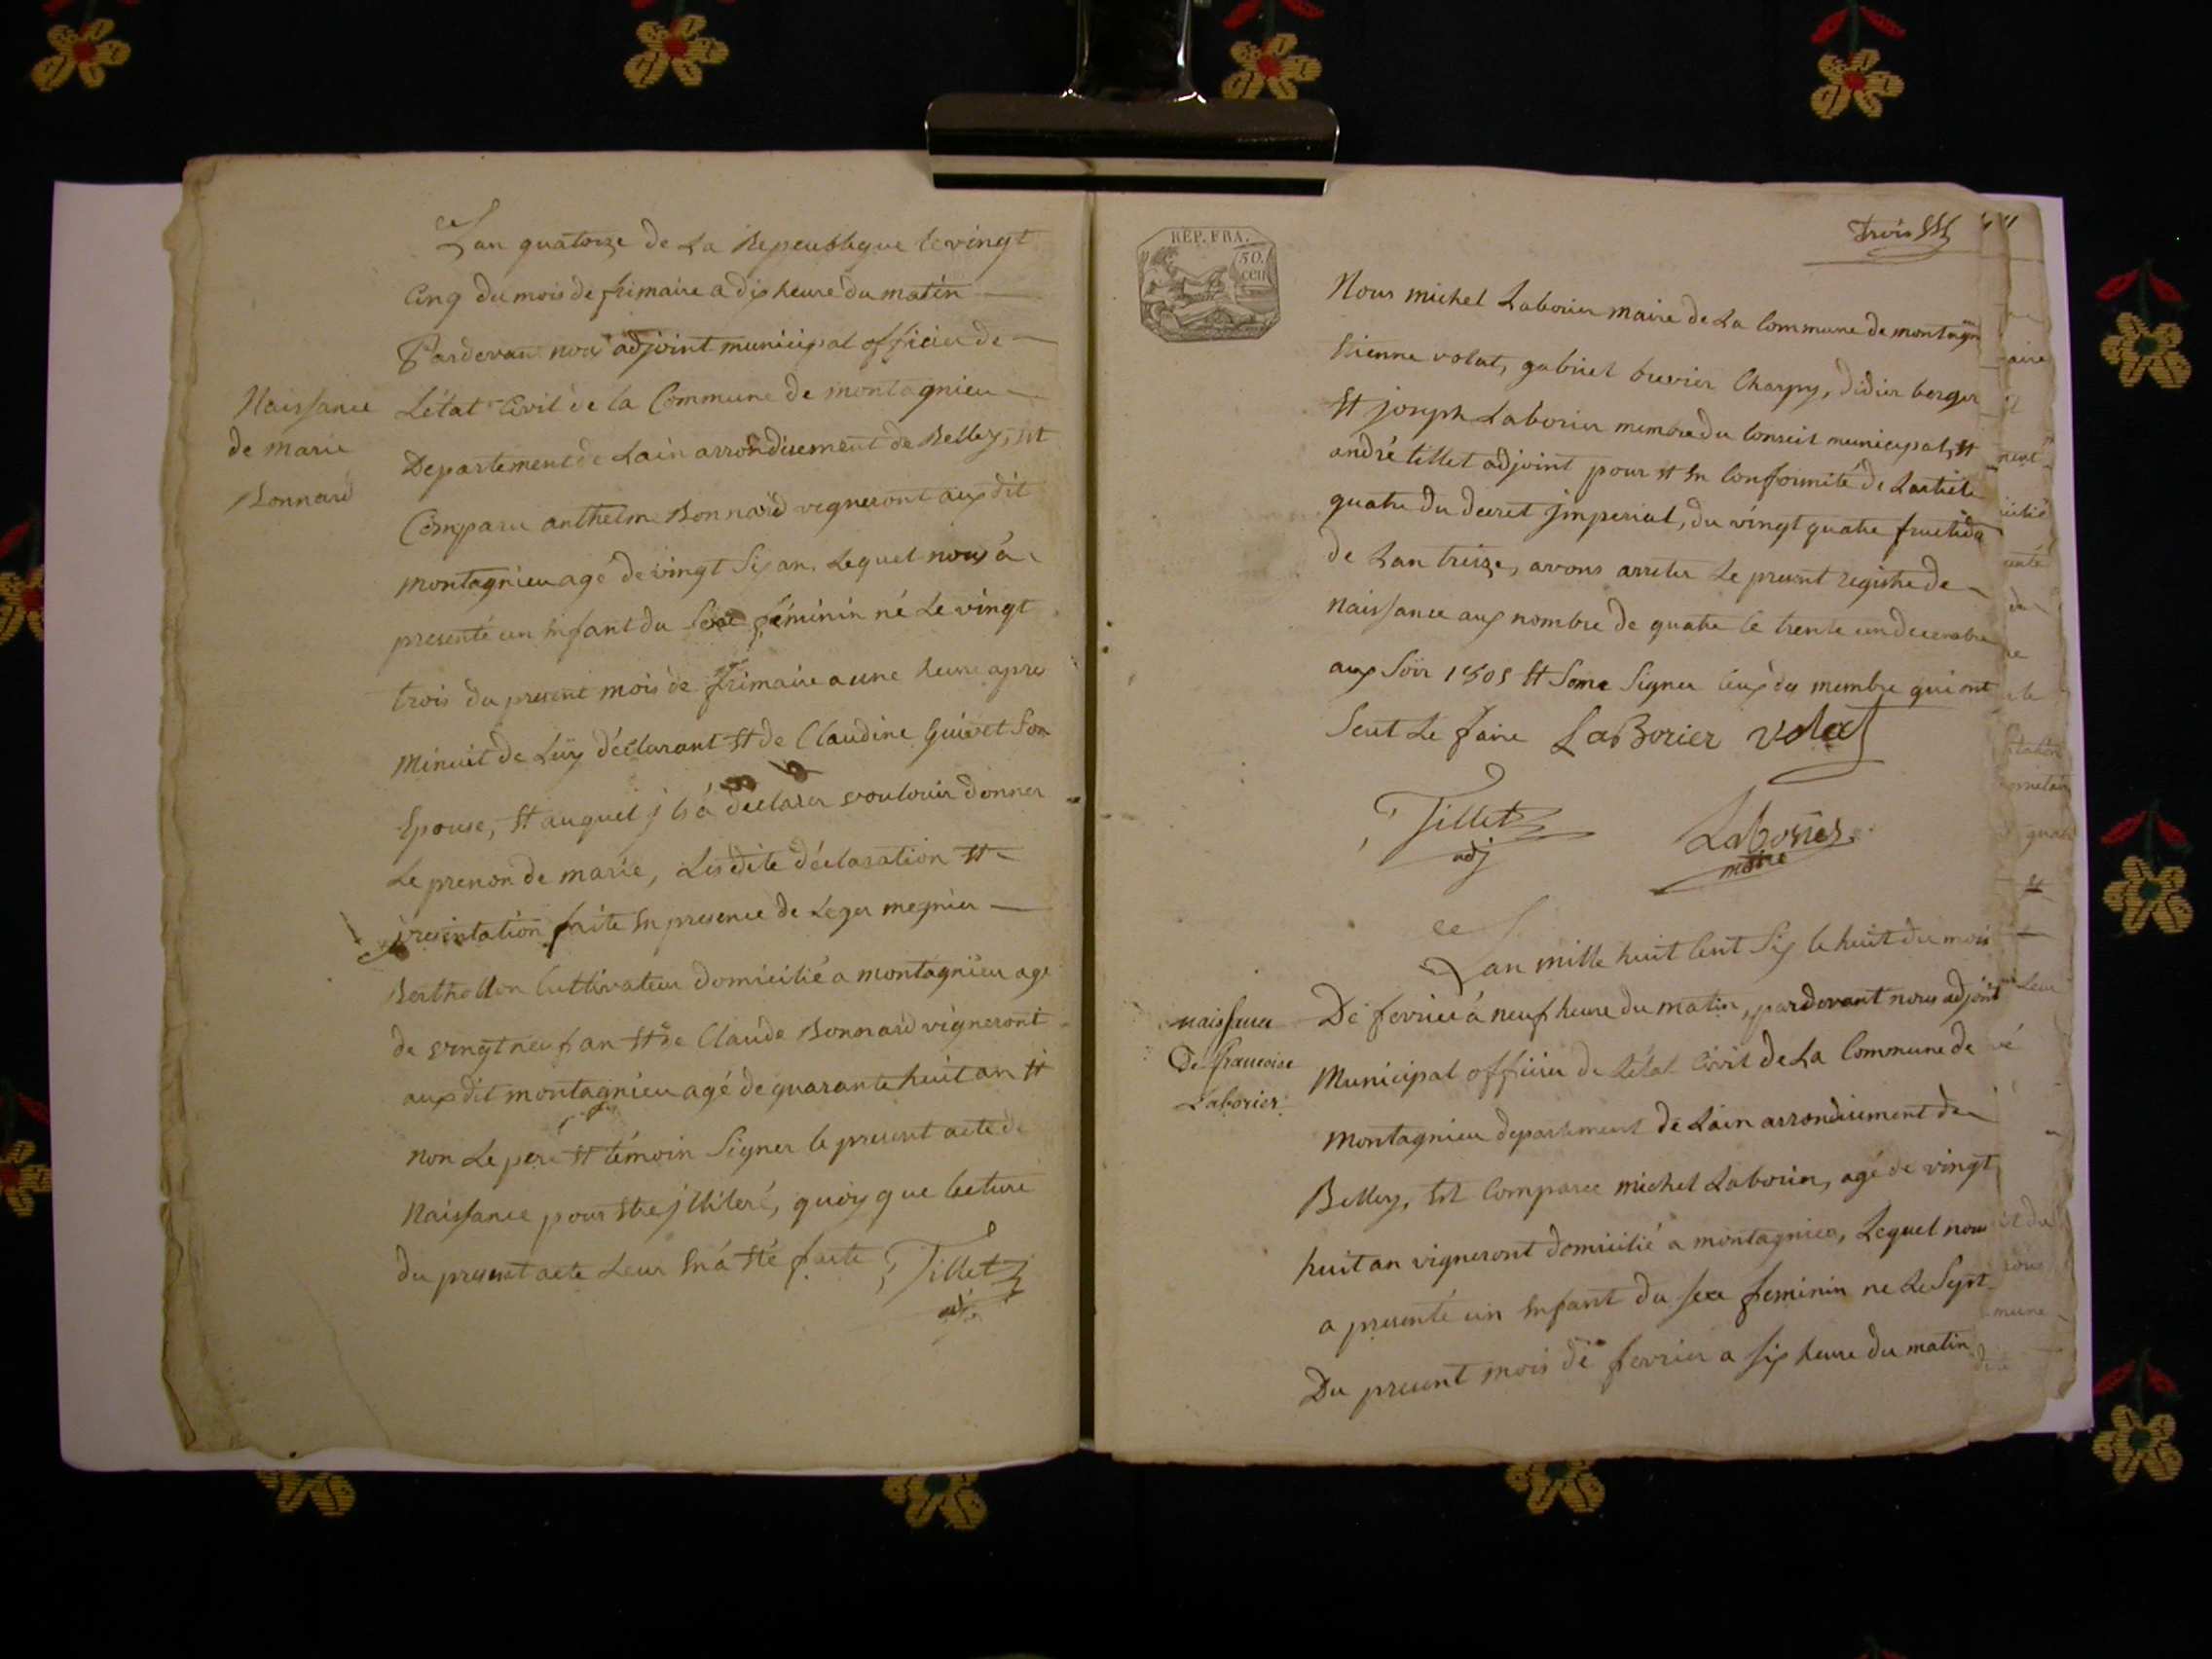 Lan quatorze de La Republique le vingt
Cinq du mois de frimaire a dix heure du matin
Pardevant nous adjoint municipal officier de
L'état Civil de la Commune de montagnieu
Departement de Lain arrondisement de Belley, st
Comparu anthelme Bonnard vigneront aux dit
montagnieu agé de vingt six an, Lequel nous à
presenté un Enfant du sexe féminin né Le vingt
trois du present mois de frimaire a une heure apres
Minuit de Luy déclarant Et de Claudine Guivet Son
Epouse, Et auquel jl à declarer vouloir donner
Le prenon de marie, Lesdite déclaration Et
presentation faite En presence de Leger megnier
Berthollon Cultivateur domicilié a montagnieu agé
de vingt neuf an Et de Claude Bonnard vigneront
aux dit montagnieu agé de quarante huit an Et
non Le pere Et témoin Signer le present acte de
Naissance pour Etre jlliteré, quoy que lecture
du present acte Leur En á Eté faite Tillet
adj.
Naissance
de marie
Bonnard
REP. FRA.
50.
cen
Trois
Nous michel Laborier maire de La Commune de montagn
Etienne volat, gabriel buvier Charpy, didier berger
Et joseph Laborier membre du Conseil municipal, Et
andré tillet adjoint pour Et En Conformité de Larticle
quatre du decret jmperial, du vingt quatre fructidor
de Lan treize, avons arreter Le present registre de
Naissance aux nombre de quatre le trente un decembre
aux Soir 1805 Et Some Signer Ceux des membre qui ont
Seut Le faire LaBorier Volat
Tillet
adj
Laborier
maire
Lan mille huit Cent Six le huit du mois
De fevrier á neuf heure du matin, pardevant nous adjoint
Municipal officier de L'état Civil de La Commune de
Montagnieu departement de Lain arrondisement de
Belley, Est Comparu michel Laborier, agé de vingt
huit an vigneront domicilié a montagnieu, Lequel nous
a presenté un Enfant du sexe feminin ne Le Sept
Du present mois de fevrier a six heure du matin
naissance
De francoise
Laborier